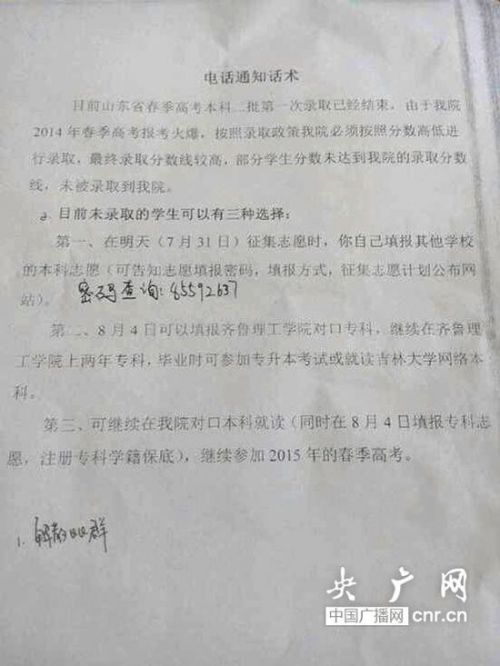 电话通知话术
目前山东省春季高考本科二批第一次录取已经结束，由于我院
2014年春季高考报考火爆，按照录取政策我院必须按照分数高低进
行录取，最终录取分数线较高，部分学生分数未达到我院的录取分数
线，未被录取到我院。
目前未录取的学生可以有三种选择：
第一、在明天（7月31日）征集志愿时，你自己填报其他学校
的本科志愿（可告知志愿填报密码，填报方式，征集志愿计划公布网
站）。 密码查询：85592637
第二、8月4日可以填报齐鲁理工学院对口专科，继续在齐鲁理
工学院上两年专科，毕业时可参加专升本考试或就读吉林大学网络本
科。
第三、可继续在我院对口本科就读（同时在8月4日填报专科志
愿，注册专科学籍保底），继续参加2015年的春季高考。
1. 解散 群
央广网
中国广播网 cnr.cn